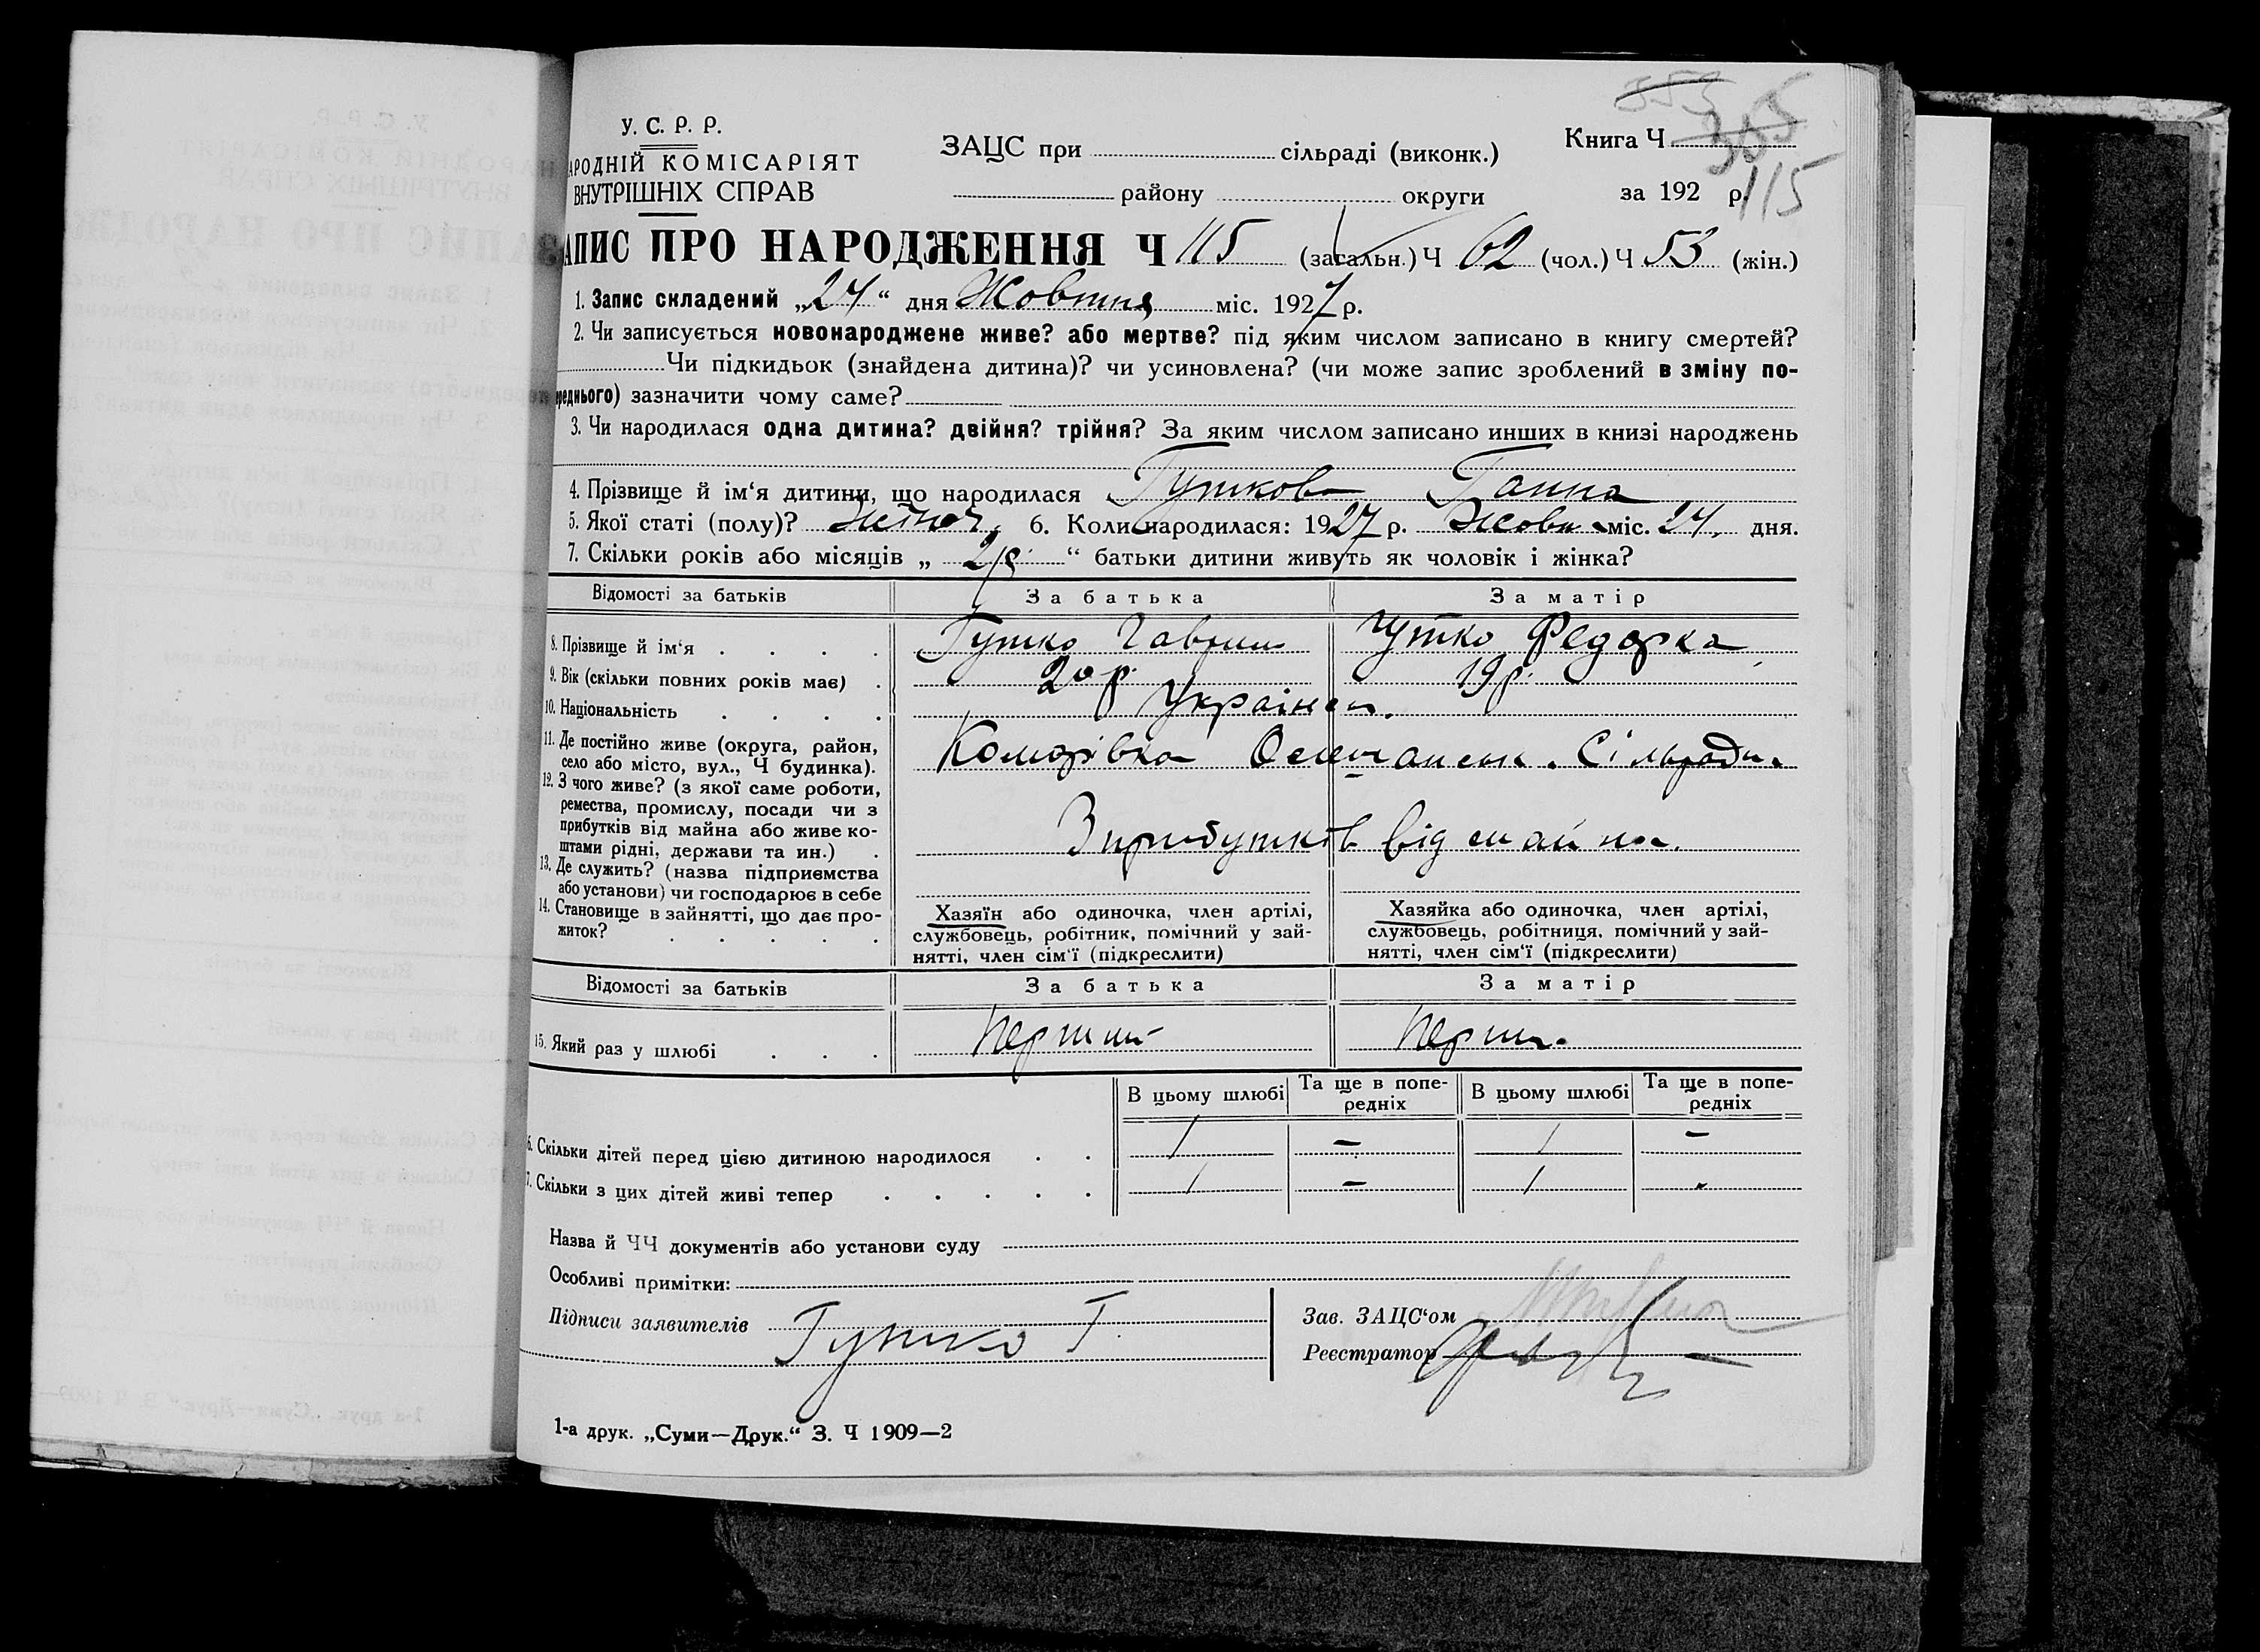 У. С. Р. Р.
АРОДНІЙ КОМІСАРІЯТ
ВНУТРІШНІХ СПРАВ
ЗАЦС при сільраді (виконк.)
району округи
353
Книга Ч 365
за 192 р. 115
АПИС ПРО НАРОДЖЕННЯ Ч 115 (загальн.) Ч 62 (чол.) Ч 53 (жін.)
1. Запис складений „24“ дня Жовтня міс. 1927 р.
2. Чи записується новонароджене живе? або мертве? під яким числом записано в книгу смертей?
Чи підкидьок (знайдена дитина)? чи усиновлена? (чи може запис зроблений в зміну по-
реднього) зазначити чому саме?
3. Чи народилася одна дитина? двійня? трійня? За яким числом записано инших в книзі народжень
4. Прізвище й ім‘я дитини, що народилася Гуткова Ганна
5. Якої статі (полу)? Жіноч. 6. Коли народилася: 1927 р. Жовт. міс. 24. дня.
7. Скільки років або місяців „ 2 р. “ батьки дитини живуть як чоловік і жінка?
Відомості за батьків За батька За матір
8. Прізвище й ім‘я . . . . Гутко Гаврил Гутко Федорка
9. Вік (скільки повних років має) . 20 р. 19 р.
10. Національність . . . . Українці.
11. Де постійно живе (округа, район,
село або місто, вул., Ч будинка). Комарівка сільради.
12. З чого живе? (з якої саме роботи,
ремества, промислу, посади чи з
прибутків від майна або живе ко-
штами рідні, держави та ин.) . З прибутків від майна.
13. Де служить? (назва підприємства
або установи) чи господарює в себе
14. Становище в зайнятті, що дає про-
житок? . . . . .
Хазяїн або одиночка, член артілі,
службовець, робітник, помічний у зай-
нятті, член сім‘ї (підкреслити)
Хазяйка або одиночка, член артілі,
службовець, робітниця, помічний у зай-
нятті, член сім‘ї (підкреслити)
Відомості за батьків За батька За матір
15. Який раз у шлюбі . . . Перший Перш.
В цьому шлюбі Та ще в попе-
редніх В цьому шлюбі Та ще в попе-
редніх
6. Скільки дітей перед цією дитиною народилося . . 1 – 1 –
7. Скільки з цих дітей живі тепер . . . . . 1 – 1 -
Назва й ЧЧ документів або установи суду
Особливі примітки:
Підписи заявителів Гутко Г.
Зав. ЗАЦС‘ом
Реєстратор
1-а друк. „Суми—Друк.“ З. Ч 1909—2